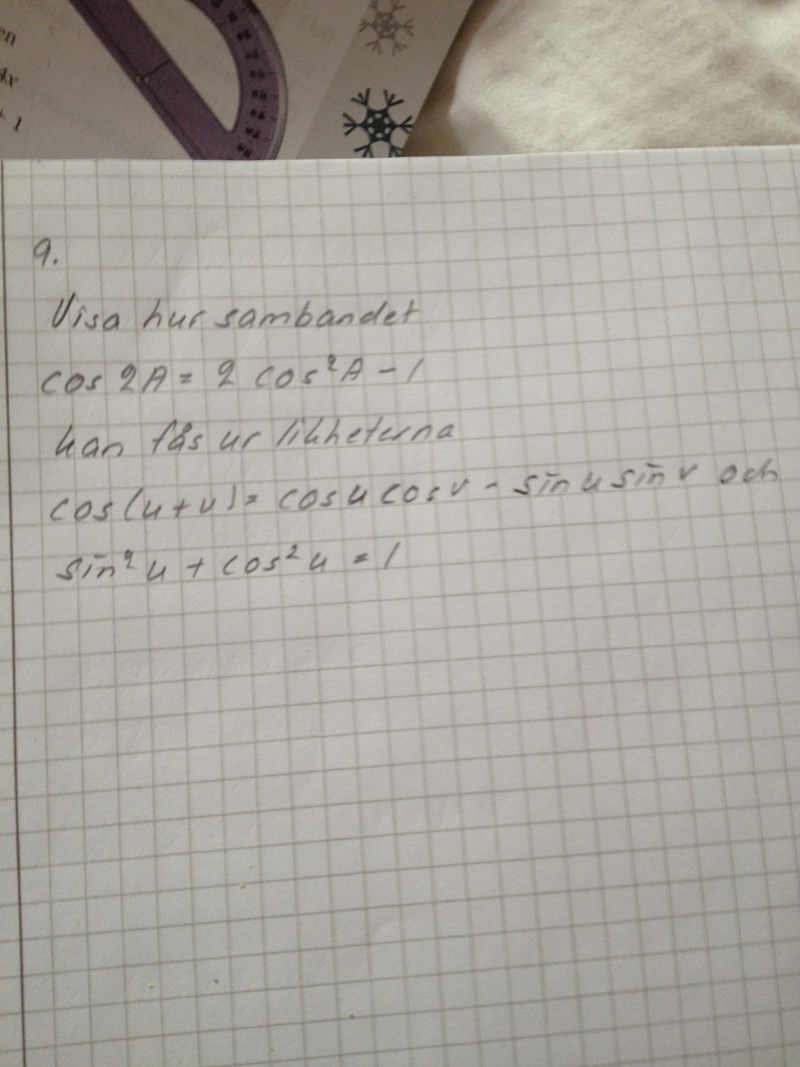 en
4x
+ 1
9.
Visa hur sambandet
cos 2A = 2 cos²A - 1
kan fås ur likheterna
cos(u+v) = cos u cos v - sin u sin v och
sin²u + cos²u = 1